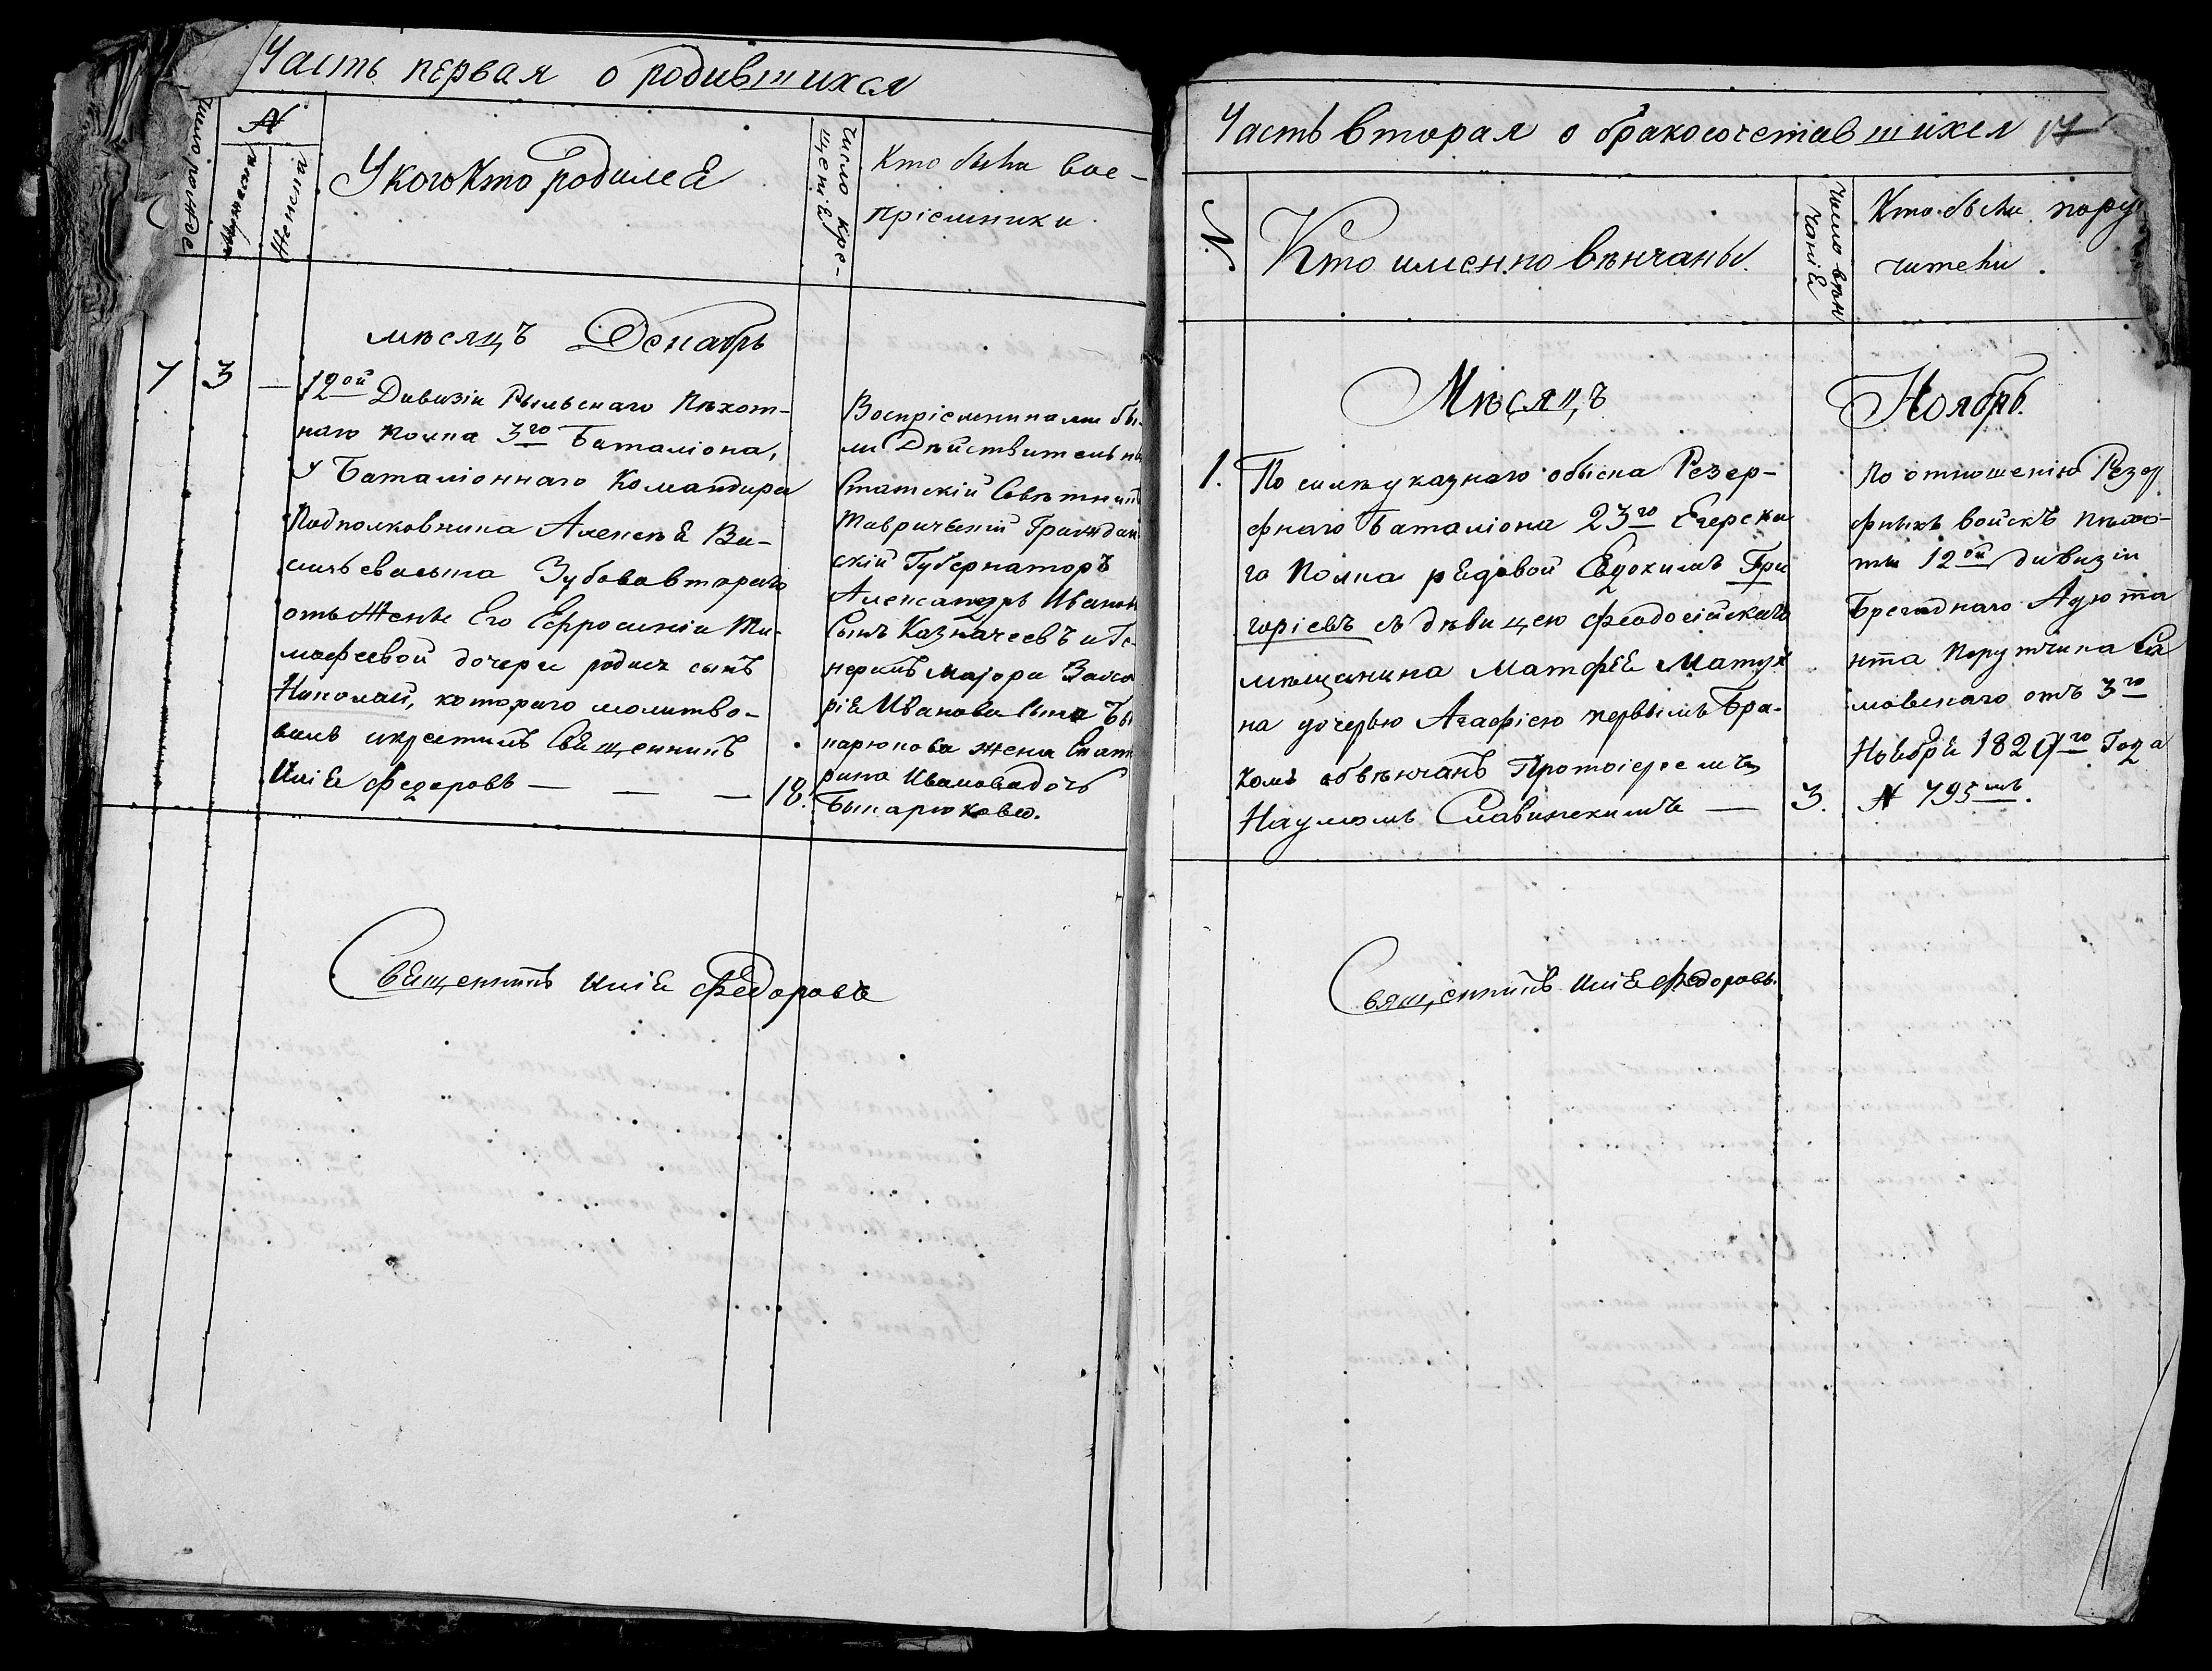 Часть первая о родившихся
Число рожде
№
Мужеска
Женска
У кого кто родился
Число кре-
щенія
Кто были вос-
пріемники
мѣсяцъ Декабрь
7 3 —
12ой Дивизіи Рыльскаго Пѣхот-
наго полка 3го Баталіона,
у Баталіоннаго Командира
Подполковника Алексѣя Ва-
сильевасына Зубова втораго
отъ Жены Его Ефросиніи Ти-
мофеевой дочери родися сынъ
Николай, котораго молитво-
валъ икрестилъ Священникъ
Илія Федоровъ — — — 18.
Воспріемниками бы-
ли Дѣйствительны
Статскій Совѣтникъ
Таврическій Граждан
скій Губернаторъ
Александръ Иванов
Сынъ Казначеевъ и Ге-
нералъ Маіора
Иванова Сына
жена Екате
рина Ивановадочь
Священникъ Илія Федоровъ
Часть вторая о бракосочетавшихся 17
№
Кто именно вѣнчаны.
Число вѣн
чанія
Кто были пору
чители.
Мѣсяцъ Ноябрь.
1. По силѣ указнаго обыска Резер-
фнаго Баталіона 23го Егерска
го Полка рядовой Евдокимъ Гри
горіевъ съ дѣвицею Феодосійскаго
мѣщанина Матфея
на дочерью Агафіею первымъ Бра-
комъ обвѣнчанъ Протоіереемъ
Наумомъ Славинскимъ — 3.
По отношенію Резер
фныхъ войскъ пѣхо-
ты 12ой дивизіи
Брегаднаго Адюта
нта Порутчика Са
мовскаго отъ 3го
Ноября го Года
№ 795мъ.
Священникъ Илія Федоровъ.